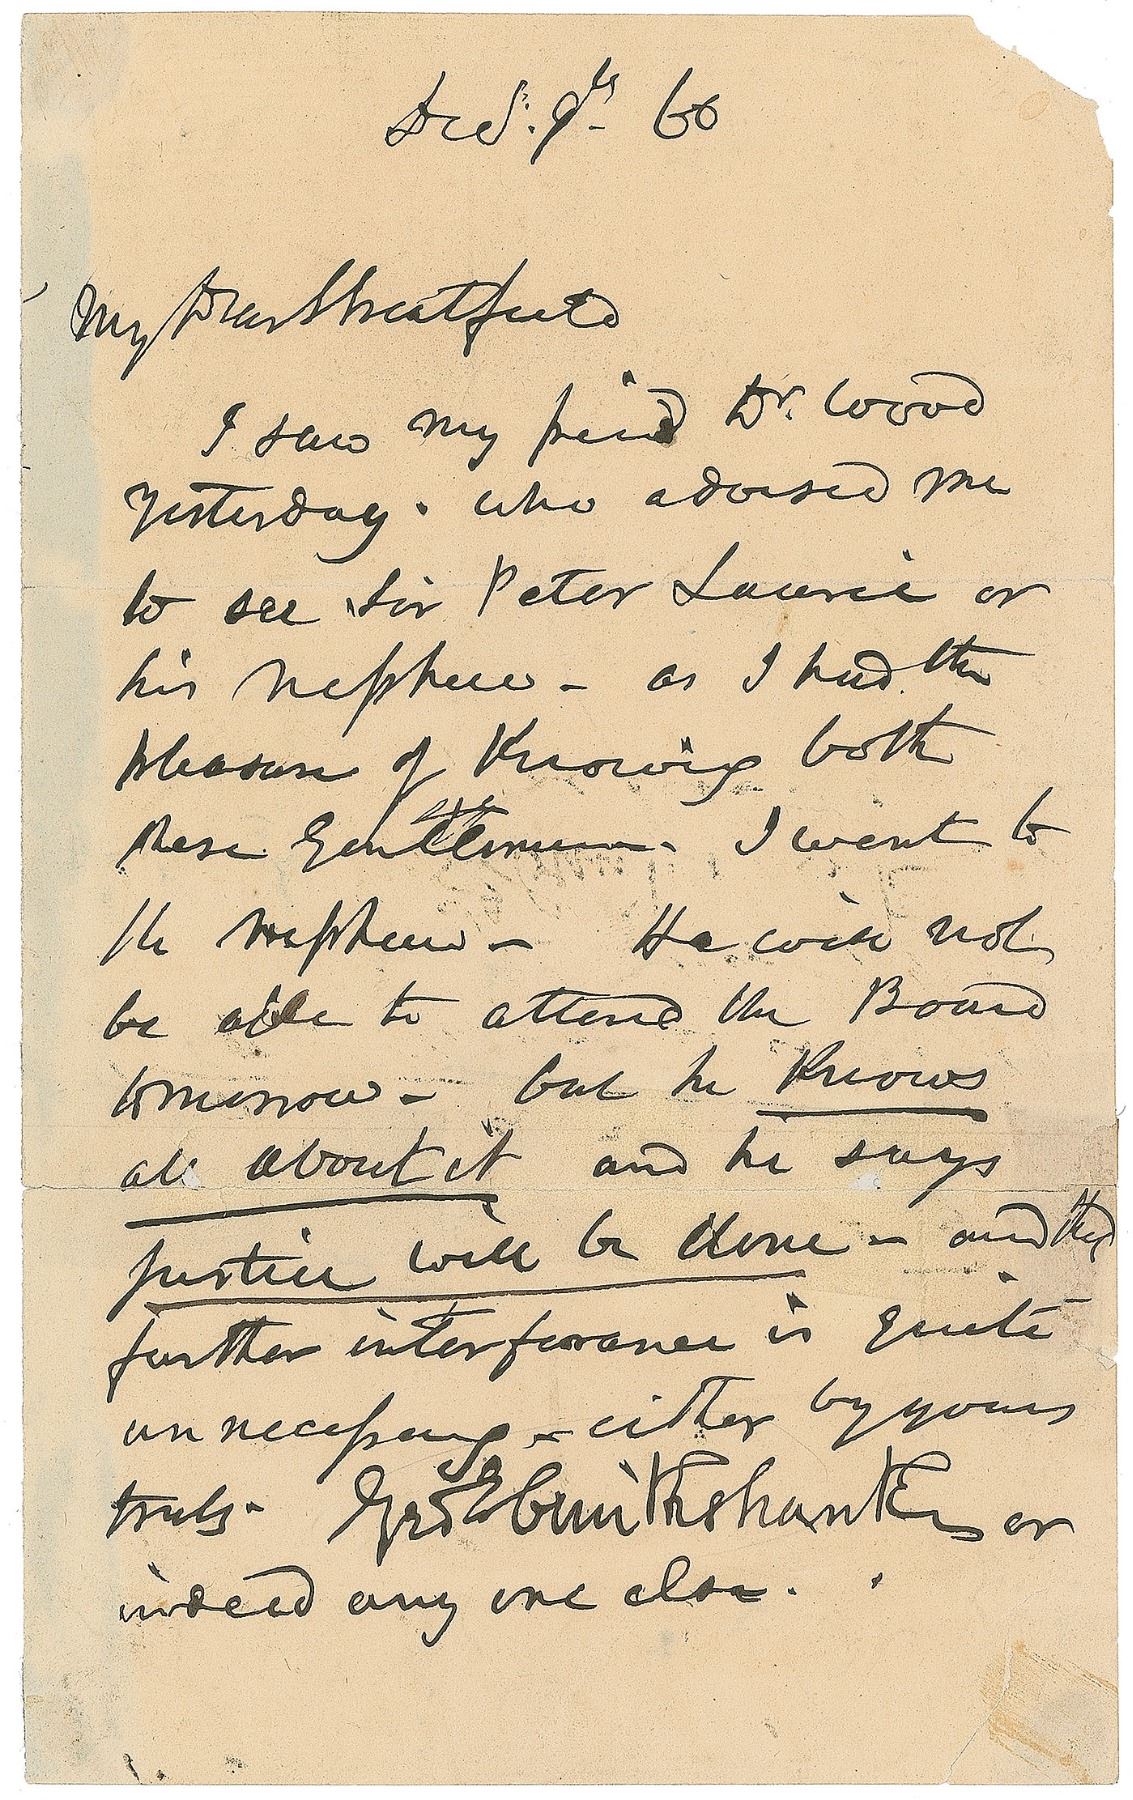 Decr. 9th 60
My Dear Streatfeild
I saw my friend Dr. Wood
yesterday. who advised me
to see Sir Peter Laurie or
his nephew – as I had the
pleasure of knowing both
these Gentlemen. I went to
the nephew – He will not
be able to attend the Board
tomorrow – but he knows
all about it and he says
justice will be done – and that
further interferance is quite
unnecessary – either by yours
truly – Geo Cruikshank or
indeed any one else.